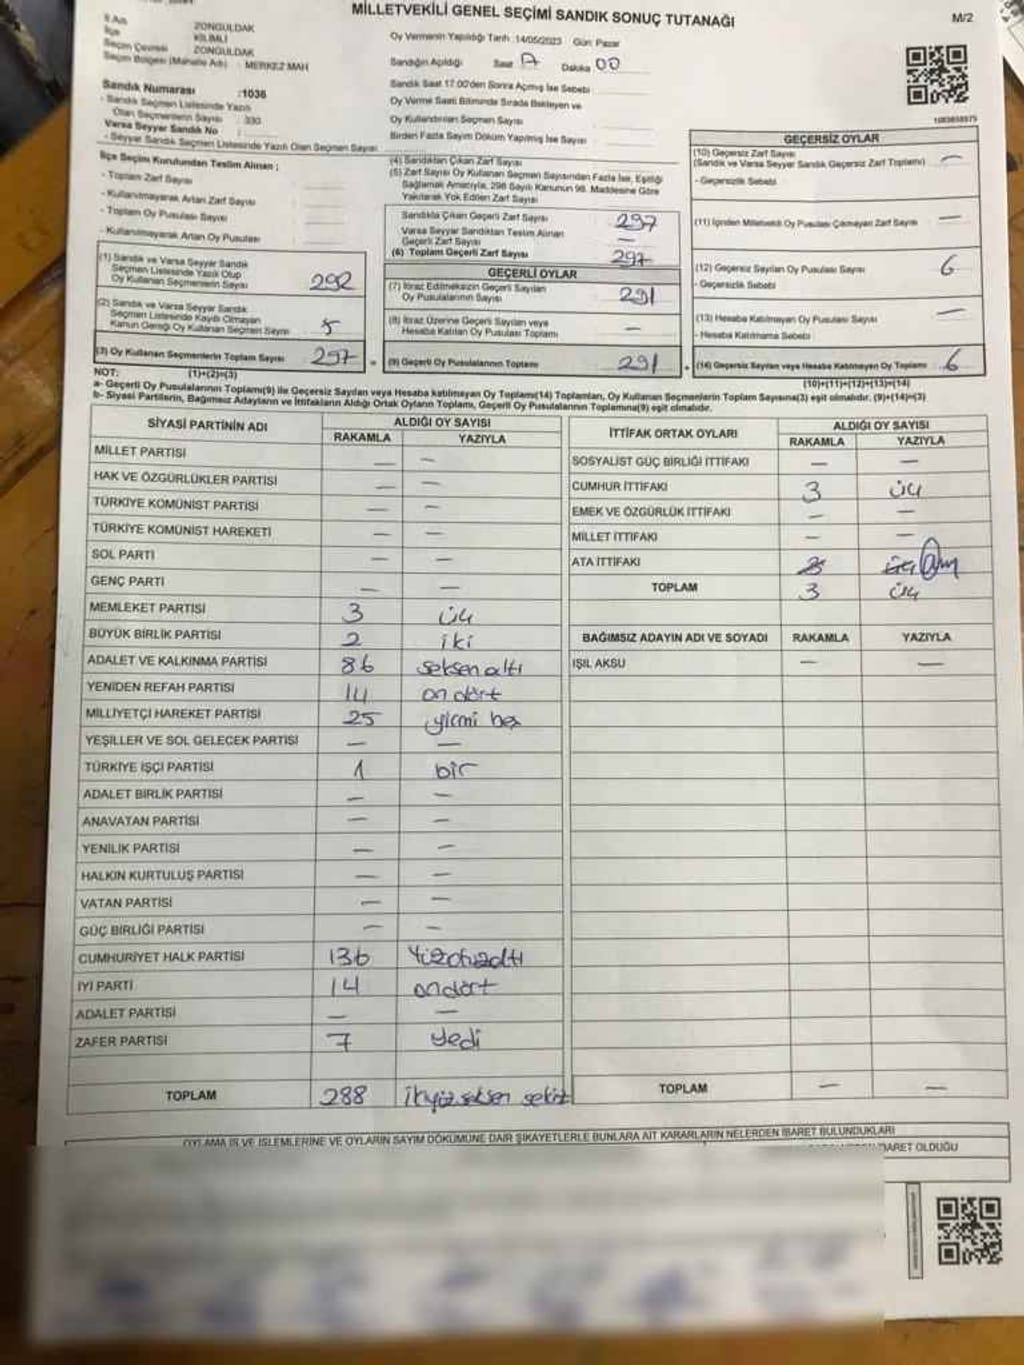 MİLLETVEKİLİ GENEL SEÇİMİ SANDIK SONUÇ TUTANAĞI
M/2
İl Adı ZONGULDAK
İlçe KİLİMLİ
Seçim Çevresi ZONGULDAK
Seçim Bölgesi (Mahalle Adı) : MERKEZ MAH
Sandık Numarası :1036
- Sandık Seçmen Listesinde Yazılı
Olan Seçmenlerin Sayısı : 330
Varsa Seyyar Sandık No :
- Seyyar Sandık Seçmen Listesinde Yazılı Olan Seçmen Sayısı
Oy Vermenin Yapıldığı Tarih :14/05/2023 Gün: Pazar
Sandığın Açıldığı Saat Dakika 00
Sandık Saat 17:00'den Sonra Açılmış İse Sebebi
Oy Verme Saati Bitiminde Sırada Bekleyen ve
Oy Kullandırılan Seçmen Sayısı
Birden Fazla Sayım Döküm Yapılmış İse Sayısı
İlçe Seçim Kurulundan Teslim Alınan ;
- Toplam Zarf Sayısı
- Kullanılmayarak Artan Zarf Sayısı
- Toplam Oy Pusulası Sayısı
- Kullanılmayarak Artan Oy Pusulası
(1) Sandık ve Varsa Seyyar Sandık
Seçmen Listesinde Yazılı Olup
Oy Kullanan Seçmenlerin Sayısı 292
(2) Sandık ve Varsa Seyyar Sandık
Seçmen Listesinde Kayıtlı Olmayan
Kanun Gereği Oy Kullanan Seçmen Sayısı 5
(3) Oy Kullanan Seçmenlerin Toplam Sayısı 297
(4) Sandıktan Çıkan Zarf Sayısı
(5) Zarf Sayısı Oy Kullanan Seçmen Sayısından Fazla İse, Eşitliği
Sağlamak Amacıyla, 298 Sayılı Kanunun 98. Maddesine Göre
Yakılarak Yok Edilen Zarf Sayısı
Sandıkta Çıkan Geçerli Zarf Sayısı 297
Varsa Seyyar Sandıktan Teslim Alınan
Geçerli Zarf Sayısı —
(6) Toplam Geçerli Zarf Sayısı 297
GEÇERLİ OYLAR
(7) İtiraz Edilmeksizin Geçerli Sayılan
Oy Pusulalarının Sayısı 291
(8) İtiraz Üzerine Geçerli Sayılan veya
Hesaba Katılan Oy Pusulası Toplamı —
= (9) Geçerli Oy Pusulalarının Toplamı 291
GEÇERSİZ OYLAR
(10) Geçersiz Zarf Sayısı
(Sandık ve Varsa Seyyar Sandık Geçersiz Zarf Toplamı) —
- Geçersizlik Sebebi
(11) İçinden Milletvekili Oy Pusulası Çıkmayan Zarf Sayısı —
(12) Geçersiz Sayılan Oy Pusulası Sayısı 6
- Geçersizlik Sebebi
(13) Hesaba Katılmayan Oy Pusulası Sayısı —
- Hesaba Katılmama Sebebi
+ (14) Geçersiz Sayılan veya Hesaba Katılmayan Oy Toplamı 6
NOT: (1)+(2)=(3) (10)+(11)+(12)+(13)=(14)
a- Geçerli Oy Pusulalarının Toplamı(9) ile Geçersiz Sayılan veya Hesaba katılmayan Oy Toplamı(14) Toplamları, Oy Kullanan Seçmenlerin Toplam Sayısına(3) eşit olmalıdır. (9)+(14)=(3)
b- Siyasi Partilerin, Bağımsız Adayların ve İttifakların Aldığı Ortak Oyların Toplamı, Geçerli Oy Pusulalarının Toplamına(9) eşit olmalıdır.
SİYASİ PARTİNİN ADI ALDIĞI OY SAYISI
RAKAMLA YAZIYLA
MİLLET PARTİSİ — —
HAK VE ÖZGÜRLÜKLER PARTİSİ — —
TÜRKİYE KOMÜNİST PARTİSİ — —
TÜRKİYE KOMÜNİST HAREKETİ — —
SOL PARTİ — —
GENÇ PARTİ — —
MEMLEKET PARTİSİ 3 üç
BÜYÜK BİRLİK PARTİSİ 2 iki
ADALET VE KALKINMA PARTİSİ 86 seksen altı
YENİDEN REFAH PARTİSİ 14 on dört
MİLLİYETÇİ HAREKET PARTİSİ 25 yirmi beş
YEŞİLLER VE SOL GELECEK PARTİSİ — —
TÜRKİYE İŞÇİ PARTİSİ 1 bir
ADALET BİRLİK PARTİSİ — —
ANAVATAN PARTİSİ — —
YENİLİK PARTİSİ — —
HALKIN KURTULUŞ PARTİSİ — —
VATAN PARTİSİ — —
GÜÇ BİRLİĞİ PARTİSİ — —
CUMHURİYET HALK PARTİSİ 136 Yüzotuzaltı
İYİ PARTİ 14 ondört
ADALET PARTİSİ — —
ZAFER PARTİSİ 7 yedi
TOPLAM 288 ikiyüzseksen sekiz
İTTİFAK ORTAK OYLARI ALDIĞI OY SAYISI
RAKAMLA YAZIYLA
SOSYALİST GÜÇ BİRLİĞİ İTTİFAKI — —
CUMHUR İTTİFAKI 3 üç
EMEK VE ÖZGÜRLÜK İTTİFAKI — —
MİLLET İTTİFAKI — —
ATA İTTİFAKI 3 üç
TOPLAM 3 üç
BAĞIMSIZ ADAYIN ADI VE SOYADI RAKAMLA YAZIYLA
IŞIL AKSU — —
TOPLAM — —
OYLAMA İŞ VE İŞLEMLERİNE VE OYLARIN SAYIM DÖKÜMÜNE DAİR ŞİKAYETLERLE BUNLARA AİT KARARLARIN NELERDEN İBARET BULUNDUKLARI
İBARET OLDUĞU